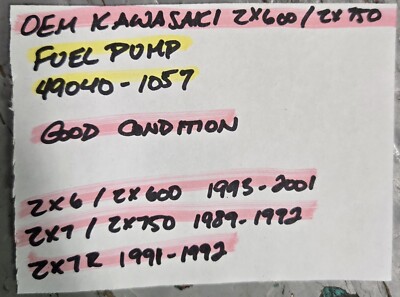 OEM KAWASAKI ZX600/ZX750
FUEL PUMP
49040-1057
GOOD CONDITION
ZX6 / ZX600 1993-2001
ZX7 / ZX750 1989-1992
ZX7R 1991-1992